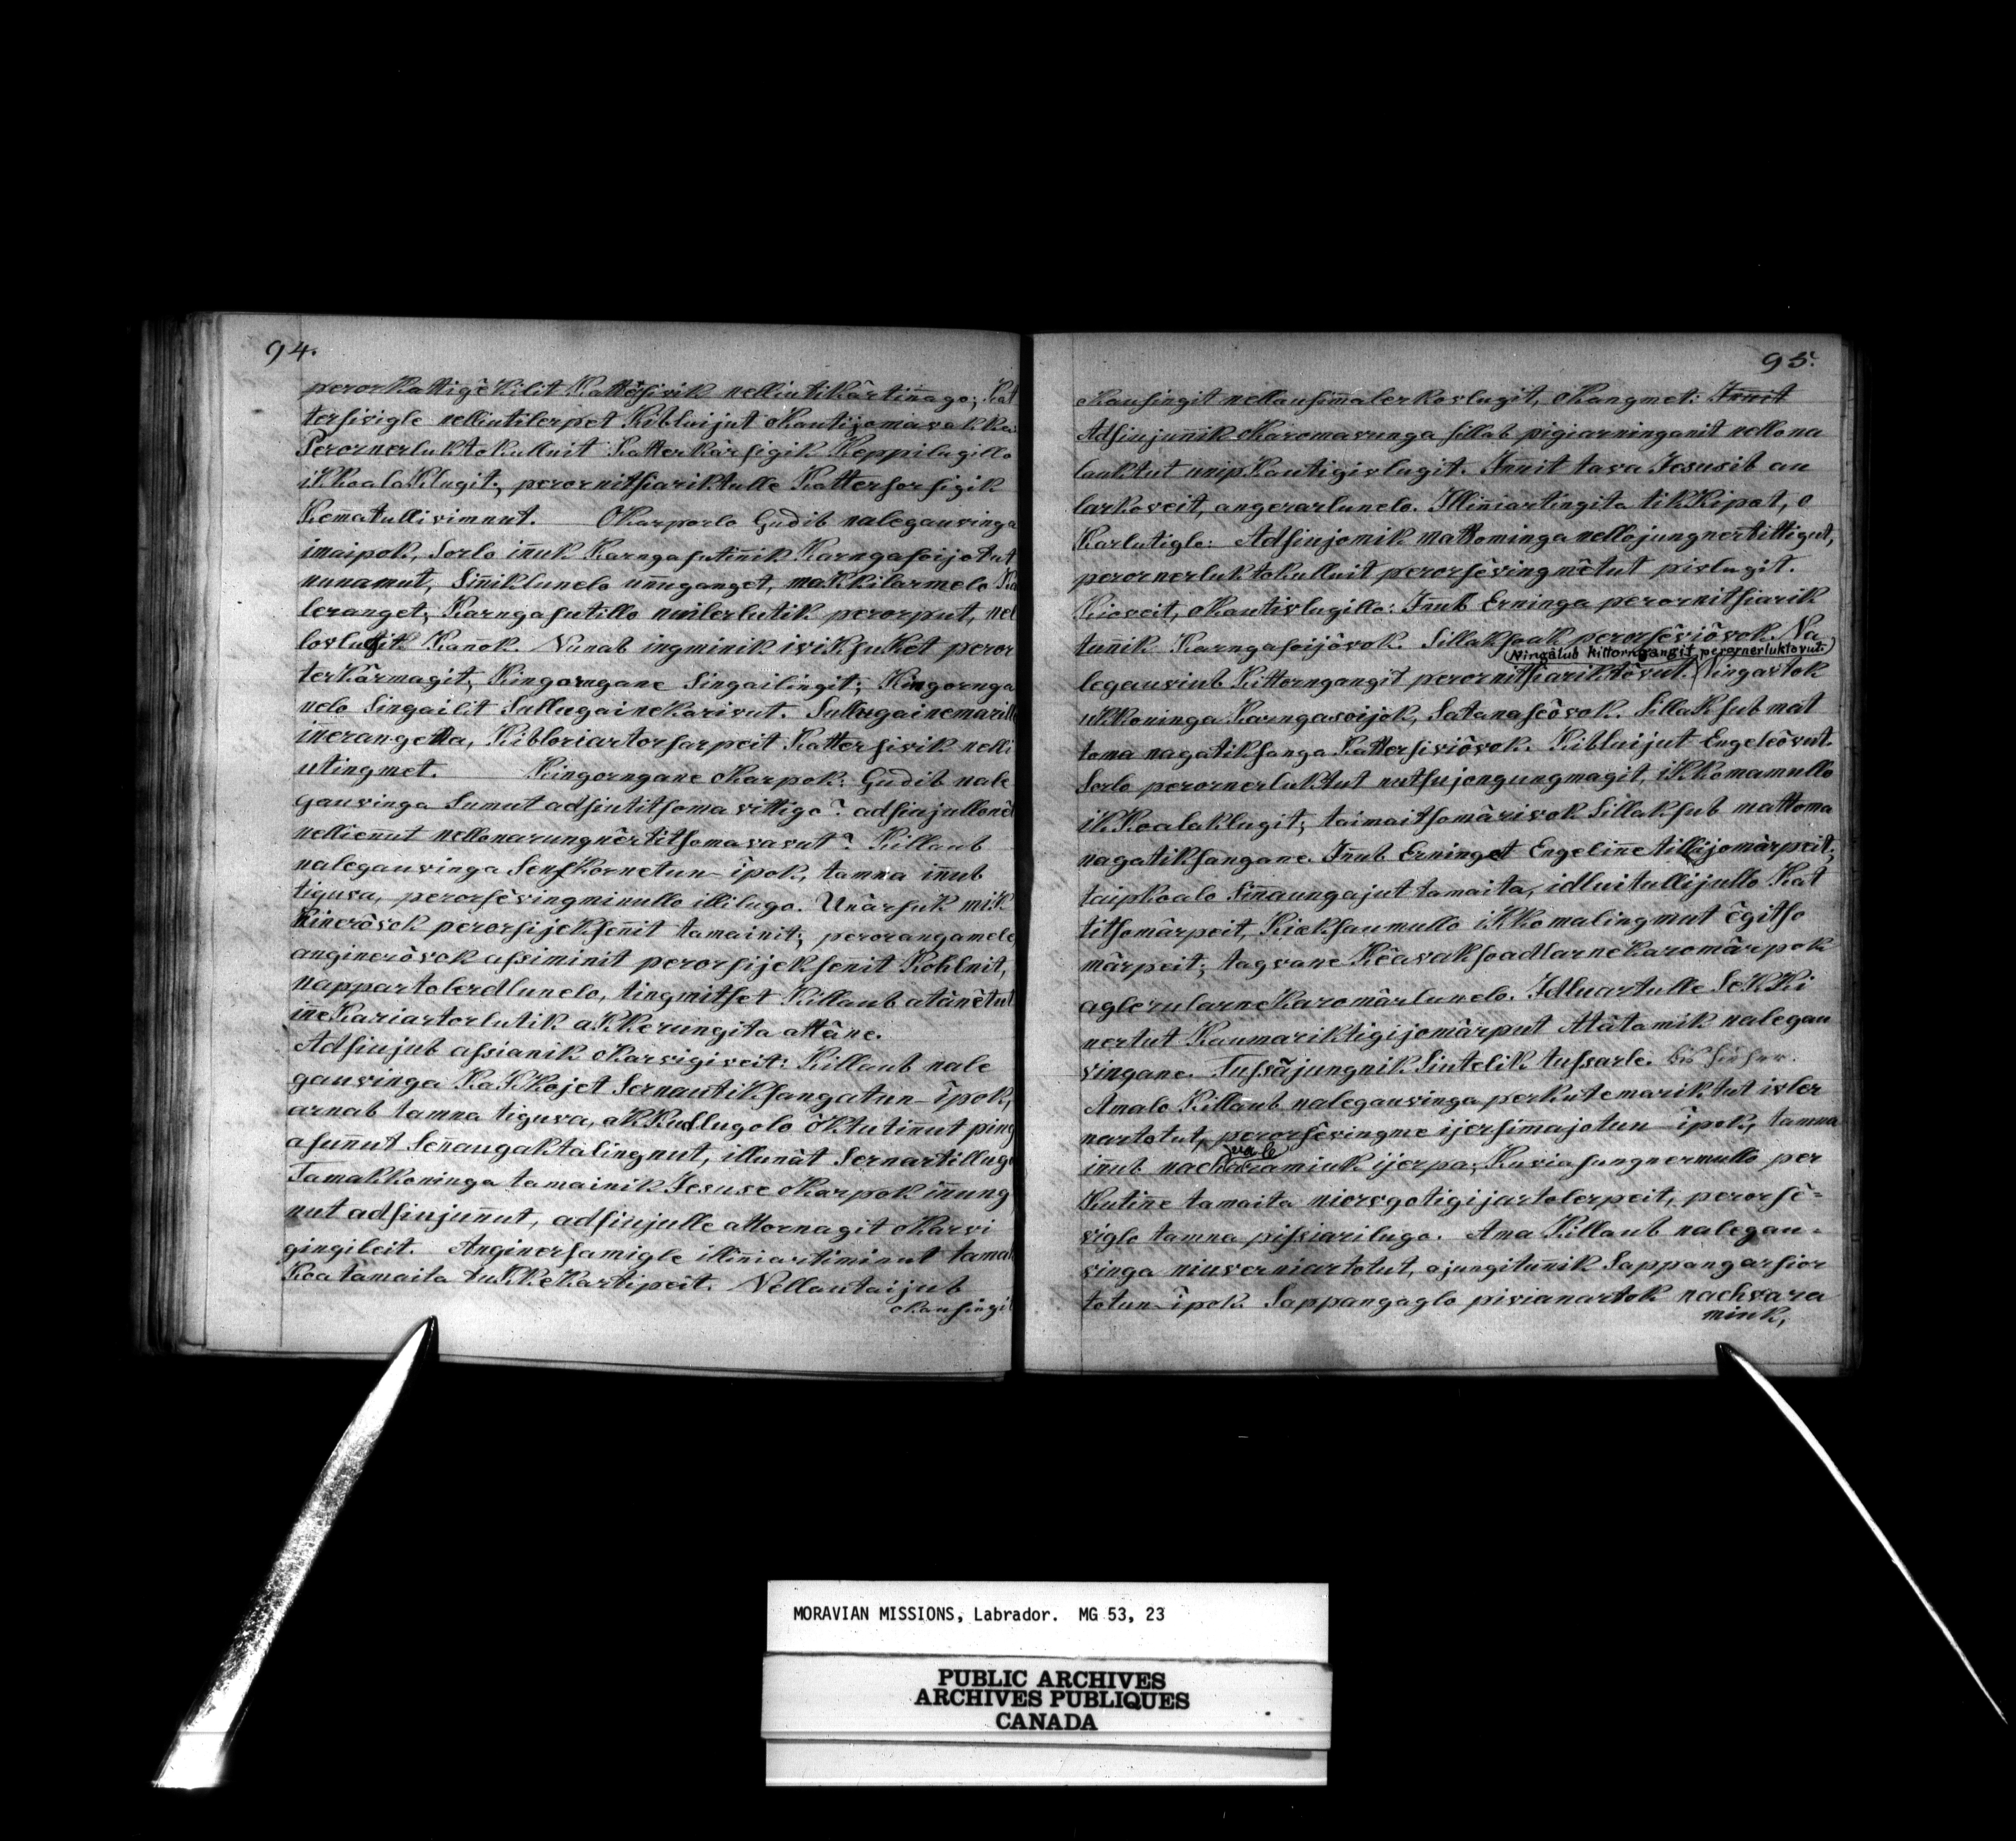 94.
perorkattigêkilit Kattersivik nelliutikârtinnago; Kat
tersivigle nelliutilerpet Kibluijut okautijomavakka:
Perornerluktokulluit Katterkârsigik Keppilugillo
ikkoalaklugit; perornitsiariktulle Kattersorsigik
Kemmatullivimnut. Okarporlo Gudib nalegauvinga
imaipok, sorlo innuk Karngasutinnik Karngasoijotut
nunamut, sinniklunelo unnuganget, makkilarmelo Kau
leranget; Karngasutillo nuilerlutik perorput, nel
lovlugit Kannok. Nunab ingminik iviksuket peror
terkârmagit, Kingorngane singailingit; Kingornga
nelo singailit sullugainekarivut. Sullugainemarillo
innerangetta, Kibloriartorsarpeit Kattersivik nelli
utingmet. Kingorngane okarpok: Gudib nale
gauvinga sumut adsiutitsomavittigo? adsiujullonêt
nelliennut nellonarungnêrtitsomavavut? Killaub
nalegauvinga Senfkornetun-ipok, tamna innub
tiguva, perorsêvingminullo illilugo. Unârsuk mik
Kinerôvok perorsijeksennit tamainit; perorangamelo
anginerôvok assiminit perorsijeksenit Kohlnit,
nappartolerdlunelo, tingmitset Killaub atânêtut
inneKariartorlutik akkerungita attâne.
Adsiujub assianik okarvigiveit: Killaub nale
gauvinga KaKKojet sernautiksangatun-ipok,
arnab tamna tiguva, akkudlugolo ôktutinnut ping
asunnut senaugaktalingnut, illunât sernartillugo
Tamakkoninga tamainik Jesuse okarpok innung
nut adsiujunnut, adsiujulle attornagit okarvi
gingileit. Anginersamigle illinniartiminut tamak
Koa tamaita tukkekartipeit. Nellautaijub
okausingit
95.
okausingit nellausimalerkovlugit, okangmet: Innit
Adsiujunnik okaromavunga sillab pigiarninganit nellona
lauktut unipkautigivlugit. Innit tava Jesusib au
larkoveit, angerarlunelo. Illinniartingita tikkipat, o
Karlutigle: Adsiujomik mattominga nellojungnertittigut,
perornerluktokulluit perorsêvingmêtut pivlugit.
Kioveit, okautivlugillo: Innub Erninga perornitsiarik
tunnik Karngasoijôvok. Sillaksoak perorsêviôvok. Na
(Ningâlub kittorngangit perornerluktovut.)
legauviub Kittorngangit perornitsiariktôvut. Ningartok
ukkoninga Karngasoijok, Satanaseôvok. Sillaksub mat
toma nagatiksanga Kattersiviôvok. Kibluijut Engeleôvut.
Sorlo perornerluktut nutsujongungmagit, ikkomamullo
ikkoalaklugit; taimaitsomârivok Sillaksub mattoma
nagatiksangane. Innub Erninget Engelinne tillijomârpeit;
taipkoalo sinnaungajut tamaita, idluitullijullo Kat
titsomârpeit, Kieksaumullo ikkomalingmut êgitso
mârpeit; tagvane Kêavaksoadlarnekaromârpok
aglerularnekaromârlunelo. Idluartulle Sekki
nertut Kaumariktigijomârput Atâtamik nalegau
vingane. Tussâjungnik siutelik tussarle. bis hieher.
Amalo Killaub nalegauvinga perkutemariktut ivler
nartotut, perorsêvingme ijersimajotun-ipok, tamna
vale
innub nachvaramiuk ijerpa; Kuviasungnermullo per
Kutinne tamaita niorvgotigijartolerpeit, perorsê-
viglo tamna pissiarilugo. Ama Killaub nalegau-
vinga niuverniartotut, ajungitunnik Sappangarsior
totun-ipok. Sappangaglo pivianartok nachvara
miuk,
MORAVIAN MISSIONS, Labrador. MG 53, 23
PUBLIC ARCHIVES
ARCHIVES PUBLIQUES
CANADA